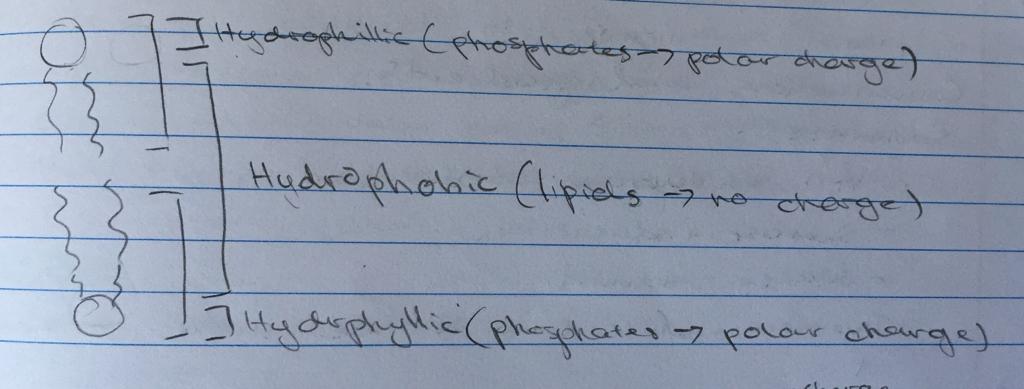 Hydrophillic (phosphates → polar charge)
Hydrophobic (lipids → no charge)
Hydrphyllic (phosphates → polour charge)